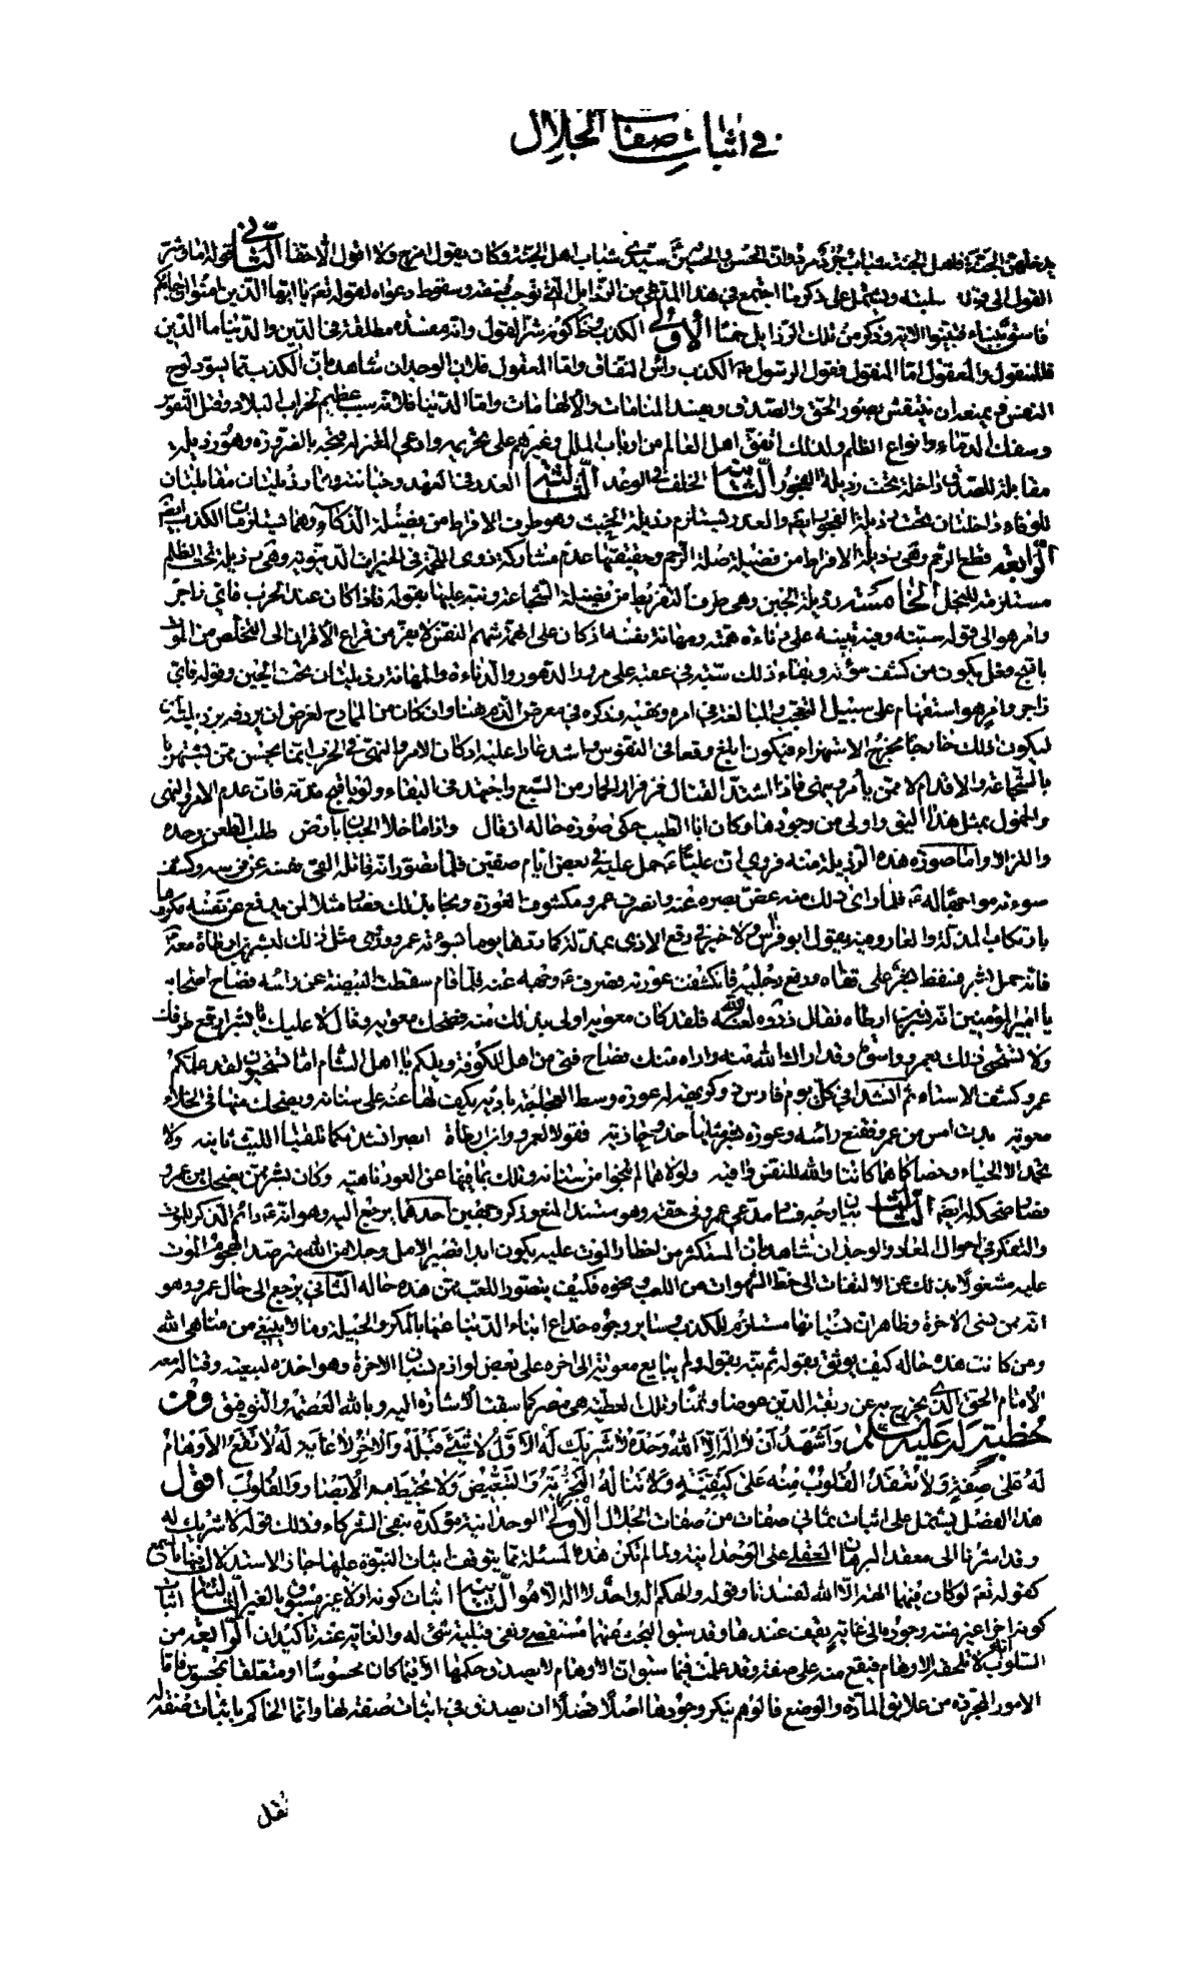 في اثبات صفات الجلال
يدخلهن الجنة فاهل الجنة شباب جرد مرد وان الحسن والحسين سيدى شباب اهل الجنة وكان يقول امزح ولا اقول الا حقا الثاني قوله اما وشر
القول الى قوله سبته ويشتمل على ذكر ما اجتمع في هذا المدعى من الرذايل التى توجب فسقه وسقوط دعواه لقوله تعم يا ايها الذين امنوا ان جائكم
فاسق بنباء فتبينوا الاية وذكر من تلك الرذايل خمسا الاولى الكذب كونه شر القول وانه مفسدة مطلقة في الدين والدنيا اما الدين
فللمنقول والمعقول اما المنقول فقول الرسول الكذب راس النفاق واما المعقول فلان الوجدان شاهد بان الكذب مما يسود لوح
النفس فيمنعه ان ينتقش بصور الحق والصدق ويفسد المنامات والالهامات واما الدنيا فلانه سبب عظيم لخراب البلاد وقتل النفوس
وسفك الدماء وانواع الظلم ولذلك اتفق اهل العالم من ارباب الملل وغيرهم على تحريمه وادعى المعتزلة قبحه بالضرورة وهو رذيلة
مقابلة للصدق داخلة تحت رذيلة الفجور الثانية الخلف في الوعد الثالثة الغدر في العهد وخيانته وهما رذيلتان مقابلتان
للوفاء داخلتان تحت رذيلة الفجور ايضم والغدر يستلزم رذيلة الخبث وهو طرف الافراط من فضيلة الذكاء وهما يستلزمان الكذب ايضم
الرابعة قطع الرحم وهي رذيلة الافراط من فضيلة صلة الرحم وحقيقتها عدم مشاركة ذوى اللحمة في الخيرات الدنيوية وهي رذيلة تحت الظلم
مستلزمة للبخل الخامسة رذيلة الجبن وهي طرف التفريط من فضيلة الشجاعة ونبه عليها بقوله فاذا كان عند الحرب فاي زاجر
وامر هو الى قوله سبته وفيه تنبيه على دناءة همته ومهانة نفسه اذ كان على الهمة شهم النفس لا يفر من قراع الاقران الى التخلص من الموت
باقبح فعل يكون من كشف سؤته وبقاء ذلك سبة في عقبه على مر الدهور والدناءة والمهانة رذيلتان تحت الجبن وقوله فاي
زاجر وامر هو استفهام على سبيل التعجب والمبالغة في امره ونهيه وذكره في معرض الذم هنا وان كان من المادح لغرض ان يردفه برذيلته
ليكون ذلك خارجا مخرج الاستهزاء فيكون ابلغ وقعا في النفوس واشد عارا عليه اذ كان الامر والنهى في الحرب انما يحسن ممن يشتهر
بالشجاعة والاقدام لا ممن يأمر وينهى فاذا اشتد القتال فر فرار الحمار من السبع واجتهد في البقاء ولو باقبح مذمة فان عدم الامر والنهى
والخمول بمثل هذا اليق واولى من وجودهما وكان ابا الطيب حكى صورة حاله اذ قال واذا ما خلا الجبان بارض طلب الطعن وحده
والنزالا واما صورة هذه الرذيلة منه فروي ان عليا حمل عليه في بعض ايام صفين فلما تصور انه قاتله القى نفسه عن فرسه وكشف
سوءته مواجها له فلما راى ذلك منه غض بصره عنه وانصرف عمرو مكشوف العورة ونجا بذلك فصار مثلا لمن يدفع عن نفسه مكروها
بارتكاب المذلة والعار وفيه يقول ابو فراس ولا خير في دفع الاذى بمذلة كما ردها يوما بسوءته عمرو وروى مثل ذلك لبسر بن ارطاة معه
فانه حمل على بسر فسقط بسر على قفاه ورفع رجليه فانكشفت عورته فصرف وجهه عنه فلما قام سقطت البيضة عن رأسه فصاح اصحابه
يا امير المؤمنين انه بسر بن ارطاه فقال ذروه لعنه الله فلقد كان معويه اولى بذلك منه فضحك معويه وقال لا عليك يا بسر ارفع طرفك
ولا تستحيى فلك بعمرو اسوة وقد اراك الله منه واراه منك فصاح فتى من اهل الكوفة ويلكم يا اهل الشام اما تستحيون لقد علمكم
عمرو كشف الاستاه ثم انشد افي كل يوم فارس ذو كريهة له عورة وسط العجاجة باديه يكف لها عنه على سنانه ويضحك منها في الخلاء
معويه بدت امس من عمرو فقنع راسه وعورة بسر مثلها حذو حاذيه فقولا لعمرو وابن ارطاة ابصرا سبيلكما لا تلقيا الليث ثانيه ولا
تحمدا الا الحيا وخصاكما هما كانتا والله للنفس واقيه ولولاهما لم تنجوا من سنانه وتلك بما فيها عن العود ناهيه وكان بسر ممن يضحك من عمرو
فصار ضحكة له ايضم الثالث بيان وجه فساد مدعى عمرو في حقه وهو مستند المنع وذكر وجهين احدهما يرجع اليه وهو انه دائم الذكر للموت
والتفكر في احوال المعاد والوجدان شاهد ان المستكثر من اخطار الموت عليه يكون ابدا قصير الامل وجلا من الله مترصد الهجوم الموت
عليه مشغولا بذلك عن الالتفات الى حظ الشهوات من اللعب ونحوه فكيف يتصور اللعب ممن هذه حاله الثاني يرجع الى حال عمرو وهو
انه ممن نسى الاخرة وظاهر ان نسيانها مستلزم للكذب وساير وجوه خداع ابناء الدنيا عنها بالمكر والحيلة وما لا ينبغي من مناهى الله
ومن كانت هذه حاله كيف يوثق بقوله ثم نبه بقوله ولم يبايع معوية الى اخره على بعض لوازم نسيان الاخرة وهو اخذه لبيعته وقتاله معه
الامام الحق الذي يخرج به عن ربقة الدين عوضا وثمنا وتلك العطية هي مصر كما سبقت الاشارة اليه وبالله العصمة والتوفيق ومن
خطبة له عليه السلم واشهد ان لا اله الا الله وحده لا شريك له الاول لا شئ قبله والاخر لا غاية له لا تقع الاوهام
له على صفة ولا تعقد القلوب منه على كيفية ولا تناله التجزية والتبعيض ولا تحيط به الابصار والقلوب اقول
هذا الفصل يشتمل على اثبات ثماني صفات من صفات الجلال الاولى الوحدانية مؤكدة بنفى الشركاء وذلك قوله لا شريك له
وقد اشرنا الى معقد البرهان العقلى على الوحدانية ولما لم تكن هذه المسئلة مما يتوقف اثبات النبوة عليها جاز الاستدلال فيها بالسمع
كقوله تعم لو كان فيهما الهة الا الله لفسدتا وقوله والهكم اله واحد لا اله الا هو الثانية اثبات كونه اولا غير مسبوق بالغير الثالثة اثبات
كونه اخرا غير منته وجوده الى غاية يقف عندها وقد سبق البحث عنهما مستقصى ونفى قبلية شئ له والغاية عنه تأكيدان الرابعة من
السلوب انه لا تلحقه الاوهام فيقع منه على صفة وقد علمت فيما سبق ان الاوهام لا يصدق حكمها الا فيما كان محسوسا او متعلقا بمحسوس فاما
الامور المجردة من علائق المادة والوضع فالوهم ينكر وجودها اصلا فضلا ان يصدق في اثبات صفة لها وانما الحاكم باثبات صفة له